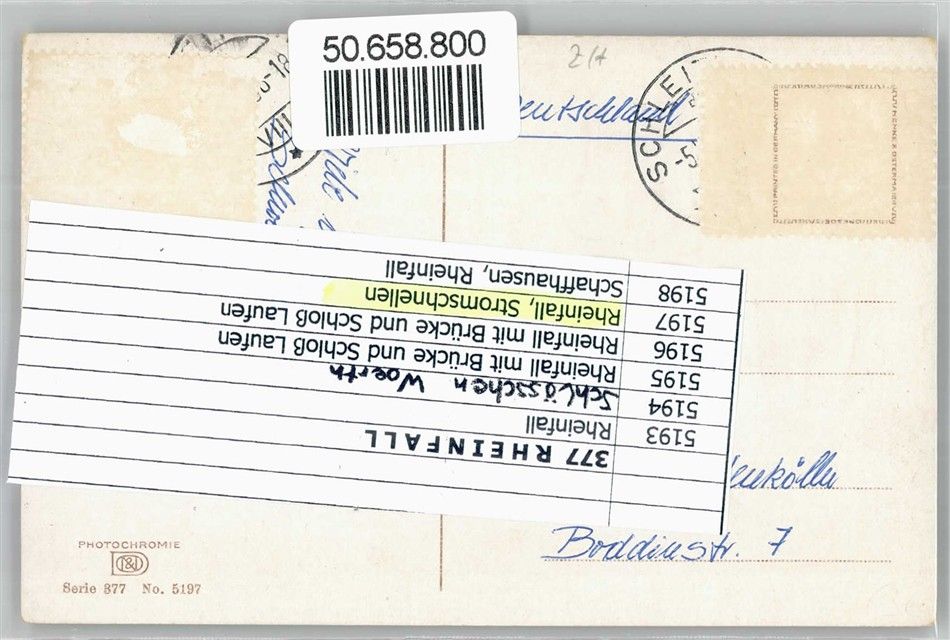 50.658.800
Z/A
Deutschland
SCHLEIT
-5
VIII
377 RHEINFALL
5193 Rheinfall
5194 Schlösschen Woerth
5195 Rheinfall mit Brücke und Schloß Laufen
5196 Rheinfall mit Brücke und Schloß Laufen
5197 Rheinfall, Stromschnellen
5198 Schaffhausen, Rheinfall
Boddinstr. 7
PHOTOCHROMIE
Serie 377 No. 5197